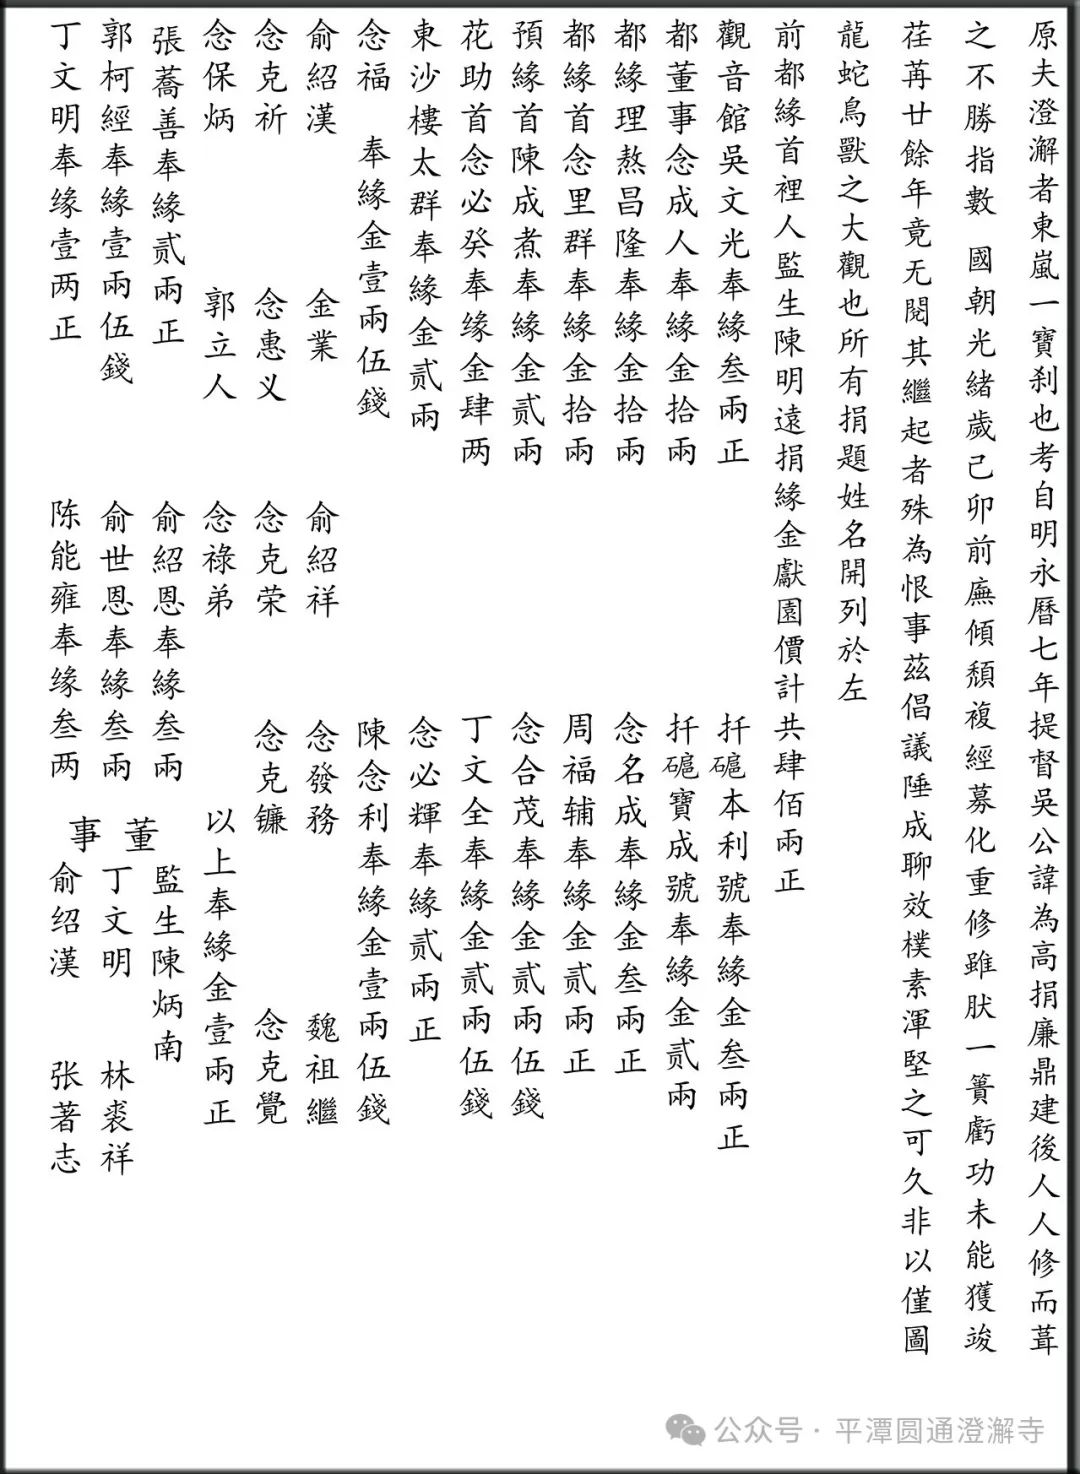 原夫澄澥者東嵐一寶刹也考自明永曆七年提督吳公諱為高捐廉鼎建後人人修而葺
之不勝指數 國朝光緒歲己卯前廡傾頹複經募化重修雖肰一簣虧功未能獲竣
荏苒廿餘年竟无閱其繼起者殊為恨事茲倡議陲成聊效樸素渾堅之可久非以僅圖
龍蛇鳥獸之大觀也所有捐題姓名開列於左
前都緣首裡人監生陳明遠捐緣金獻園價計共肆佰兩正
觀音館吳文光奉緣叁兩正 扦磇本利號奉緣金叁兩正
都董事念成人奉緣金拾兩 扦磇寶成號奉緣金贰兩
都緣理熬昌隆奉緣金拾兩 念名成奉緣金叁兩正
都緣首念里群奉緣金拾兩 周福辅奉緣金贰兩正
預緣首陳成煮奉緣金贰兩 念合茂奉緣金贰兩伍錢
花助首念必癸奉缘金肆两 丁文全奉緣金贰兩伍錢
東沙樓太群奉緣金贰兩 念必輝奉緣贰兩正
念福 奉緣金壹兩伍錢 陳念利奉緣金壹兩伍錢
俞紹漢 金業 俞紹祥 念發務 魏祖繼
念克祈 念惠义 念克荣 念克镰 念克覺
念保炳 郭立人 念祿弟 以上奉緣金壹兩正
張蕎善奉緣贰兩正 俞紹恩奉緣叁兩
郭柯經奉緣壹兩伍錢 俞世恩奉緣叁兩
丁文明奉缘壹两正 陈能雍奉缘叁两
董事
監生陳炳南
丁文明 林裘祥
俞绍漢 张著志
公众号 · 平潭圆通澄澥寺